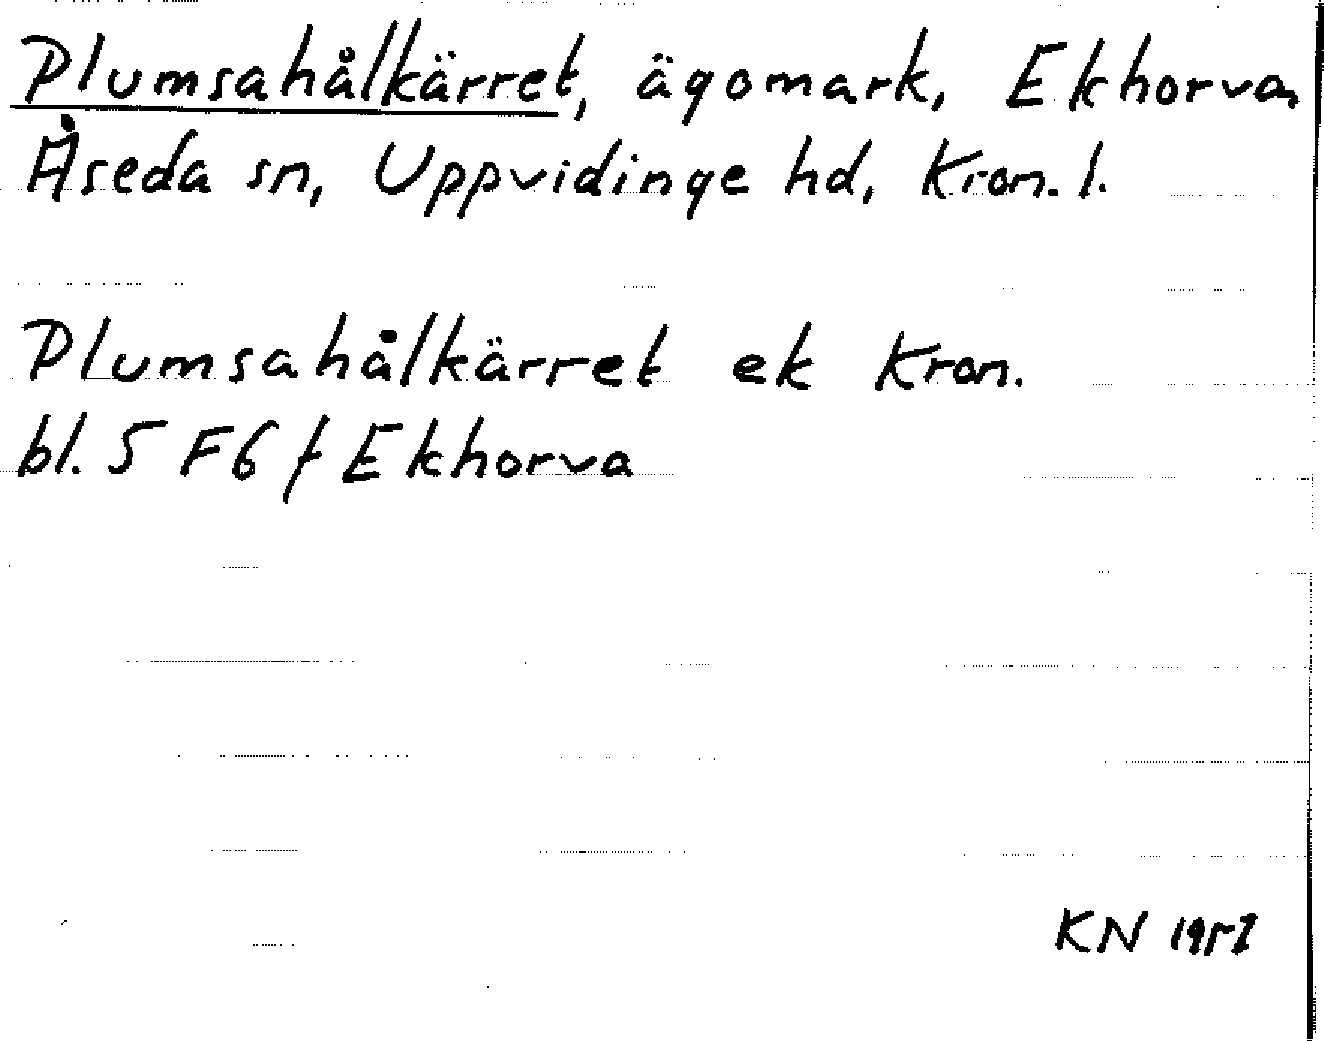 Plumsahålkärret, ägomark, Ekhorva,
Åseda sn, Uppvidinge hd, Kron. l.
Plumsahålkärret ek Kron.
bl. 5 F 6 f Ekhorva
KN 1957